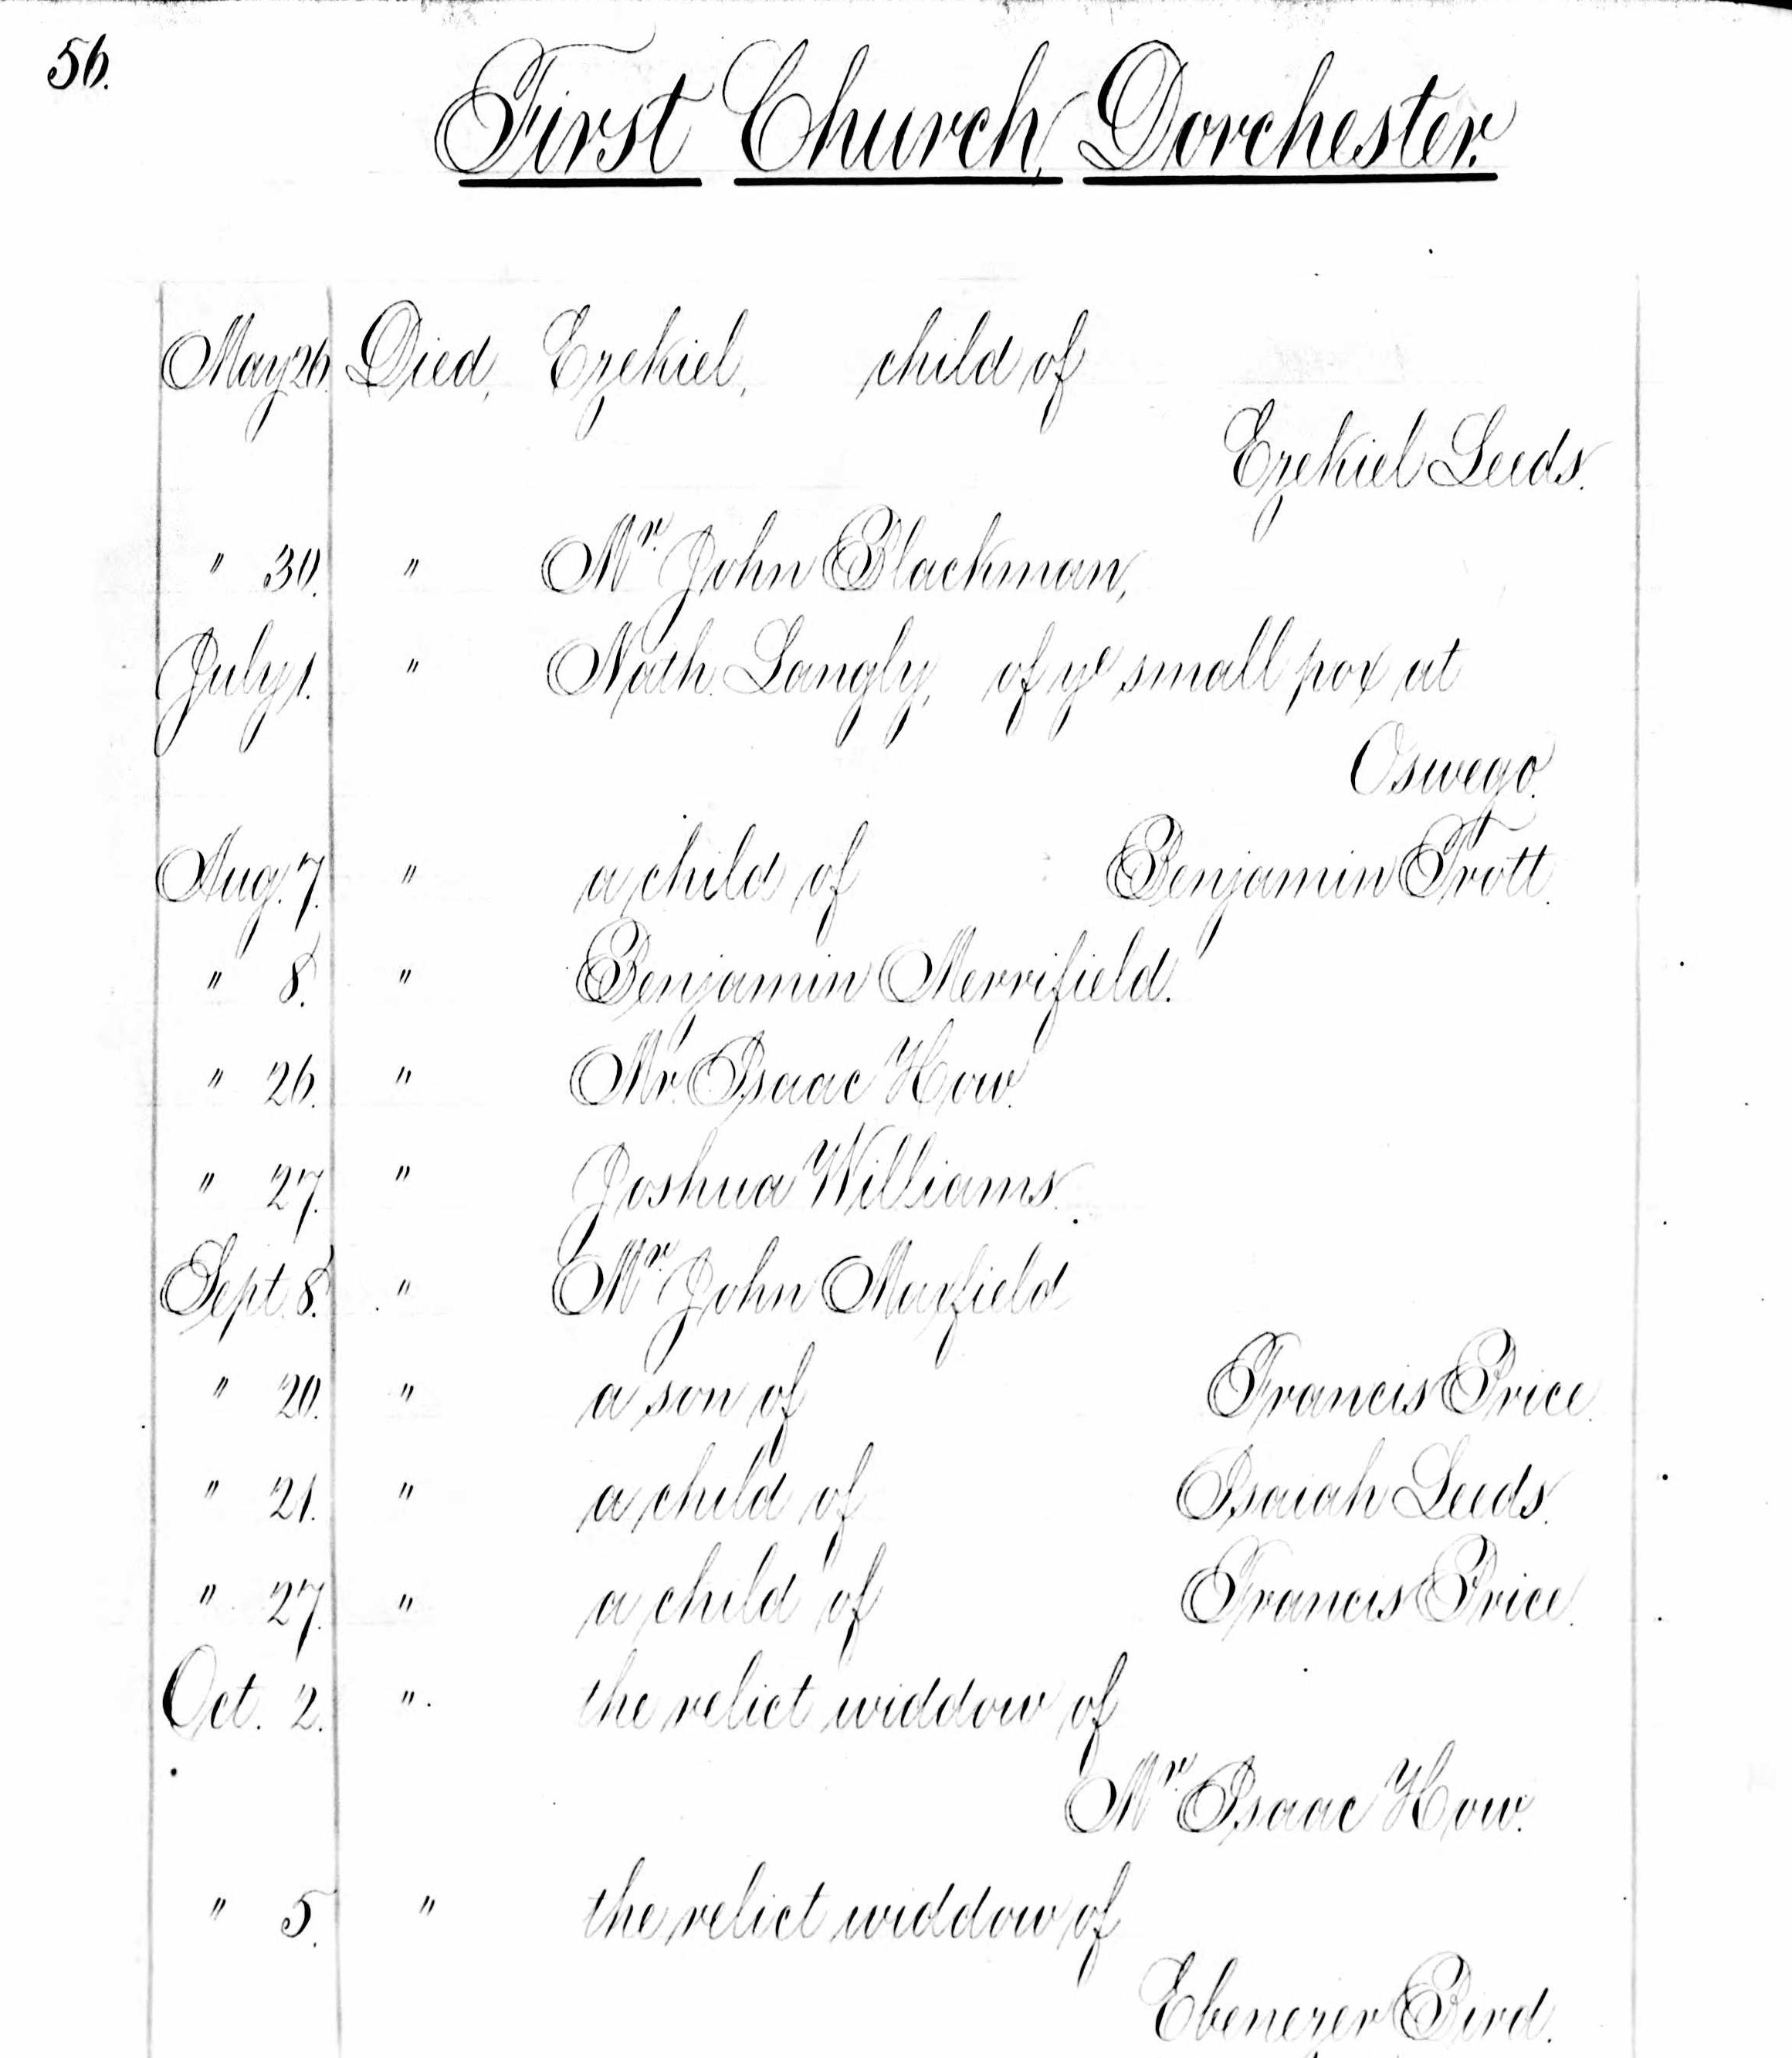 56.
First Church, Dorchester.
May 26. Died, Ezekiel, child of
Ezekiel Leeds.
" 30. " Mr. John Blackman,
July 1. " Nath. Langly, of ye small pox at
Oswego.
Aug. 7. " a child of Benjamin Trott.
" 8. " Benjamin Merrifield.
" 26. " Mr. Isaac How.
" 27. " Joshua Williams.
Sept. 8. " Mr. John Maxfield
" 20. " a son of Francis Price.
" 21. " a child of Isaiah Leeds.
" 27. " a child of Francis Price.
Oct. 2. " the relict widdow of
Mr. Isaac How.
" 5. " the relict widdow of
Ebenezer Bird.